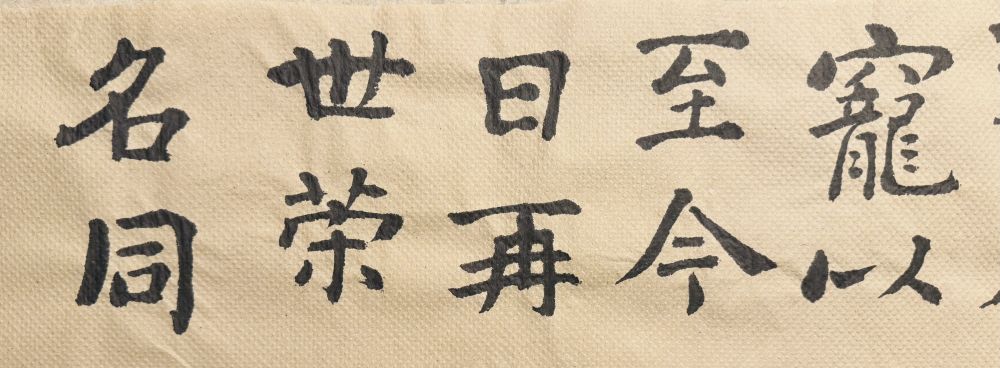 寵以
至今
日再
世荣
名同